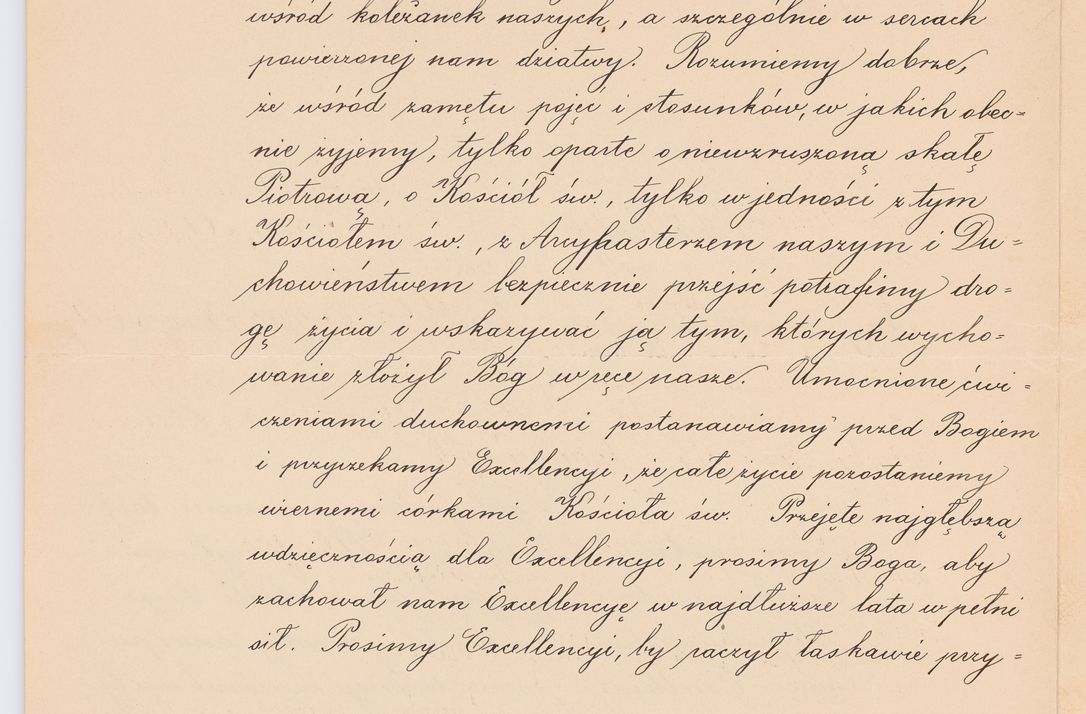 wśród koleżanek naszych, a szczególnie w sercach
powierzonej nam dziatwy. Rozumiemy dobrze,
że wśród zamętu pojęć i stosunków, w jakich obec=
nie żyjemy, tylko oparte o niewzruszoną skałę
Piotrową, o Kościół św., tylko w jedności z tym
Kościołem św., z Arcypasterzem naszym i Du=
chowieństwem bezpiecznie przejść potrafimy dro=
gę życia i wskazywać ją tym, których wycho=
wanie złożył Bóg w ręce nasze. Umocnione ćwi=
czeniami duchownemi postanawiamy przed Bogiem
i przyrzekamy Excellencyi, że całe życie pozostaniemy
wiernemi córkami Kościoła św. Przejęte najgłębszą
wdzięcznością dla Excellencyi, prosimy Boga, aby
zachował nam Excellencyę w najdłuższe lata w pełni
sił. Prosimy Excellencyi, by raczył łaskawie przy=